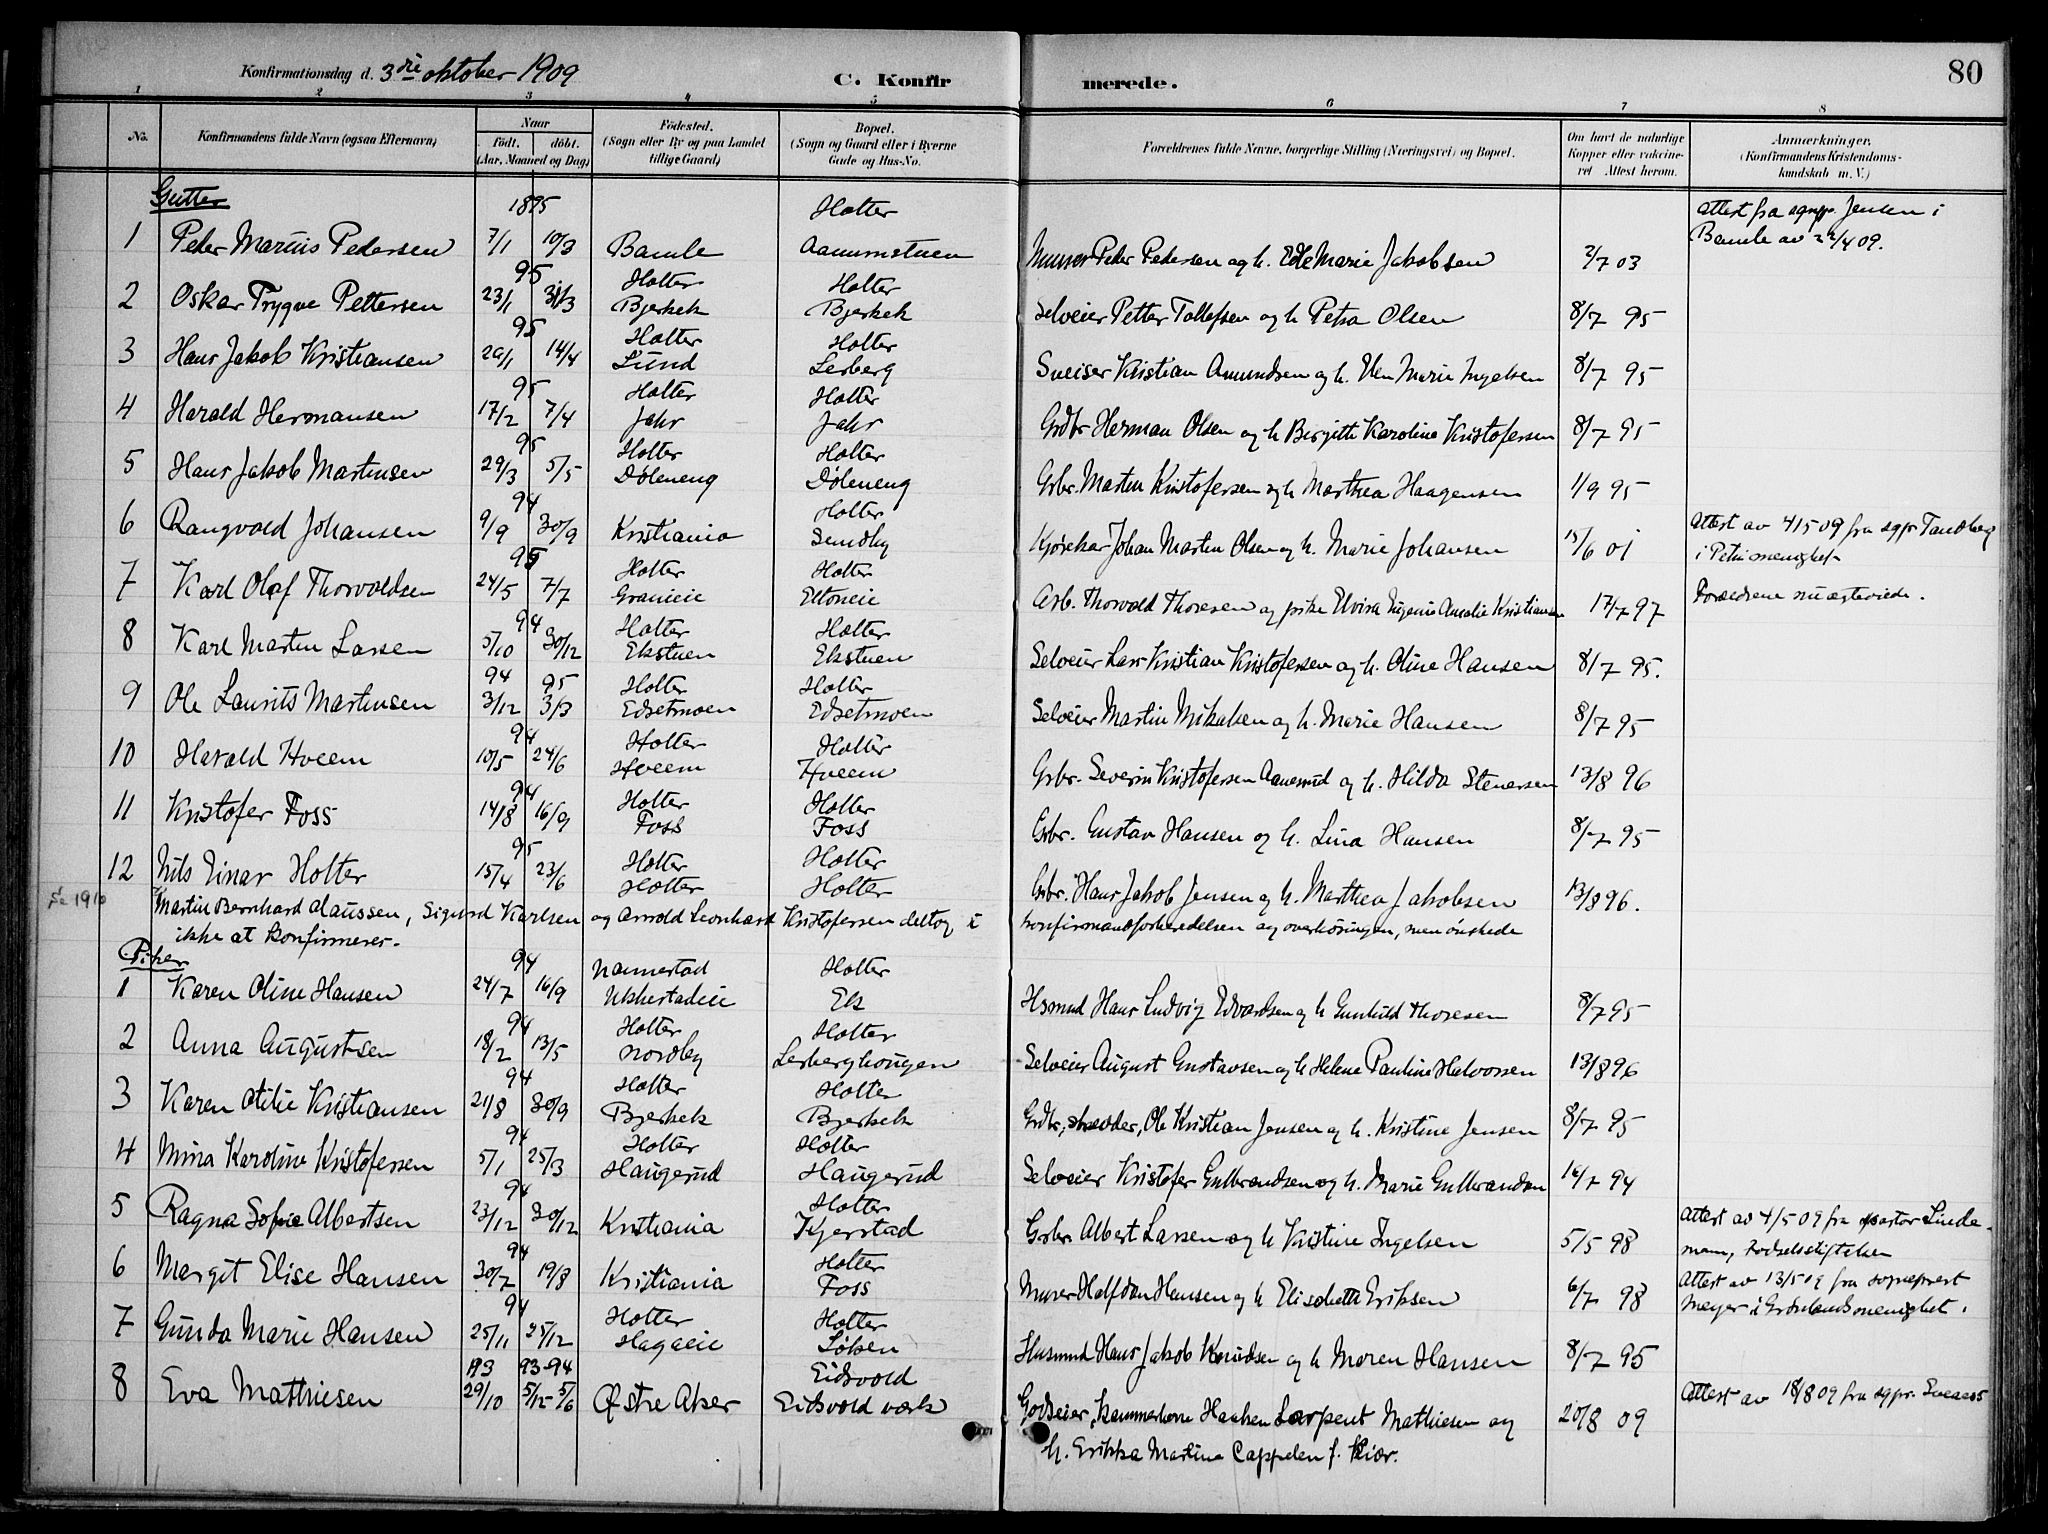 80
Konfirmationsdag d. 3die oktober 1909
C. Konfirmerede.
1 2 3 4 5 6 7 8
No. Konfirmandens fulde Navn (ogsaa Efternavn) Naar født. døbt. (Aar, Maaned og Dag) Fødested. (Sogn eller By og paa Landet tillige Gaard) Bopæl. (Sogn og Gaard eller i Byerne Gade og Hus-No. Forældrenes fulde Navne, borgerlige Stilling (Næringsvei) og Bopæl. Om havt de naturlige Kopper eller vakcineret Attest herom. Anmærkninger. (Konfirmandens Kristendomskundskab m. V.)
Gutter
1 Peder Marius Pedersen 1895 7/1 10/3 Bamle Holter Aamumstuen Murer Peder Pedersen og h. Edle Marie Jakobsen 2/7 03 Attest fra sognepr. Jensen i Bamle av 22/4 09.
2 Oskar Trygve Pettersen 95 23/1 31/3 Holter Bjerkek Holter Bjerkek Selveier Petter Tollefsen og h Petra Olsen 8/7 95
3 Hans Jakob Kristiansen 95 29/1 14/4 Holter Lund Holter Lerberg Sveiser Kristian Amundsen og h. Elen Marie Ingelsen 8/7 95
4 Harald Hermansen 95 17/2 7/4 Holter Jahr Holter Jahr Grdbr Herman Olsen og h Birgitte Karoline Kristofersen 8/7 95
5 Hans Jakob Martinsen 95 29/3 5/5 Holter Døleneng Holter Døleneng Grbr. Martin Kristofersen og h Marthea Haagensen 1/9 95
6 Rangvald Johansen 94 9/9 30/9 Kristiania Holter Sundby Kjørekar Johan Martin Olsen og h. Marie Johansen 15/6 01 Attest av 4/5 09 fra sgpr Tandberg i Petri menighet
7 Karl Olaf Thorvaldsen 95 24/5 7/7 Holter Granieie Holter Eltoneie Arb. Thorvald Thoresen og pike Elvira Eugenie Amalie Kristiansen 17/7 97 Forældrene nu egteviede.
8 Karl Martin Larsen 94 5/10 30/12 Holter Ekstuen Holter Ekstuen Selveier Lars Kristian Kristofersen og h. Oline Hansen 8/7 95.
9 Ole Laurits Martinsen 94 3/12 95 3/3 Holter Edsetmoen Holter Edsetmoen Selveier Martin Mikalsen og h. Marie Hansen 8/7 95
10 Harald Hveem 94 10/5 24/6 Holter Hveem Holter Hveem Grbr. Severin Kristofersen Aanesrud og h. Hilda Stenersen 13/8 96
11 Kristofer Foss 94 14/8 16/9 Holter Foss Holter Foss Grbr. Gustav Hansen og h. Lina Hansen 8/7 95
12 Nils Einar Holter 95 15/4 23/6 Holter Holter Holter Holter Grbr. Hans Jakob Jensen og h. Marthea Jakobsen 13/8 96.
Se 1910 Martin Bernhard Claussen, Sigurd Karlsen og Arnold Leonhard Kristofersen deltog i konfirmantforberedelsen og overhøringen, men ønskede
ikke at konfirmeres.
Piker
1 Karen Oline Hansen 94 24/7 16/9 Nannestad Ukkestadeie Holter Ek Husmnd Hans Ludvig Edvardsen og h Gunhild Thoresen 8/7 95
2 Anna Augustsen 94 18/2 13/5 Holter Nordby Holter Lerberghougen Selveier August Gustavsen og h Helene Pauline Halvorsen 13/8 96
3 Karen Otilie Kristiansen 94 21/8 30/9 Holter Bjerkek Holter Bjerkek Grdbr, skrædder, Ole Kristian Jensen og h. Kristine Jensen 8/7 95
4 Mina Karoline Kristofersen 94 5/1 25/3 Holter Haugerud Holter Haugerud Selveier Kristofer Gulbrandsen og h. Marie Gulbrandsen 16/7 94
5 Ragna Sofie Albertsen 94 23/12 30/12 Kristiania Holter Kjerstad Grbr Albert Larsen og h Kristine Ingelsen 5/5 98 Attest av 4/5 09 fra pastor Lindemann, Fødselsstiftelsen
6 Margit Elise Hansen 94 30/7 19/8 Kristiania Holter Foss Murer Halfdan Hansen og h Elisabeth Eriksen 6/7 98 Attest av 13/5 09 fra sogneprest Meyer i Grønlands menighet.
7 Gunda Marie Hansen 94 25/11 25/12 Holter Hagaeie Holter Løken Husmnd Hans Jakob Knudsen og h Maren Hansen 8/7 95
8 Eva Mathiesen 93 29/10 93-94 5/12-5/6 Østre Aker Eidsvold Eidsvold værk Godseier, kammerherre Haaken Larpent Mathiesen og h. Erikka Martina Cappelen f. Kiær. 20/8 09 Attest av 18/8 09 fra sgpr.